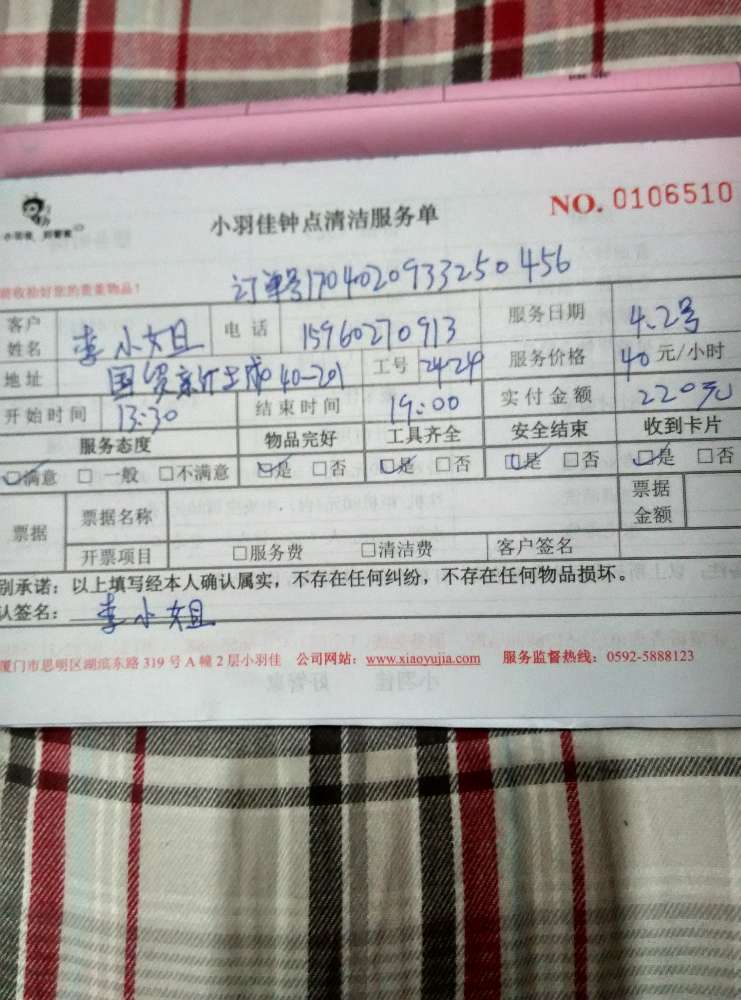 小羽佳 好管家
小羽佳钟点清洁服务单
NO. 0106510
请收拾好您的贵重物品！
订单号1704020933250456
客户姓名 李小姐 电话 15960270913 服务日期 4.2号
地址 国贸 40-201 工号 2424 服务价格 40元/小时
开始时间 13:30 结束时间 19:00 实付金额 220元
服务态度 物品完好 工具齐全 安全结束 收到卡片
☑满意 □一般 □不满意 ☑是 □否 ☑是 □否 ☑是 □否 ☑是 □否
票据 票据名称 票据金额
开票项目 □服务费 □清洁费 客户签名
别承诺：以上填写经本人确认属实，不存在任何纠纷，不存在任何物品损坏。
认签名：李小姐
厦门市思明区湖滨东路 319 号 A 幢 2 层小羽佳 公司网站：www.xiaoyujia.com 服务监督热线：0592-5888123